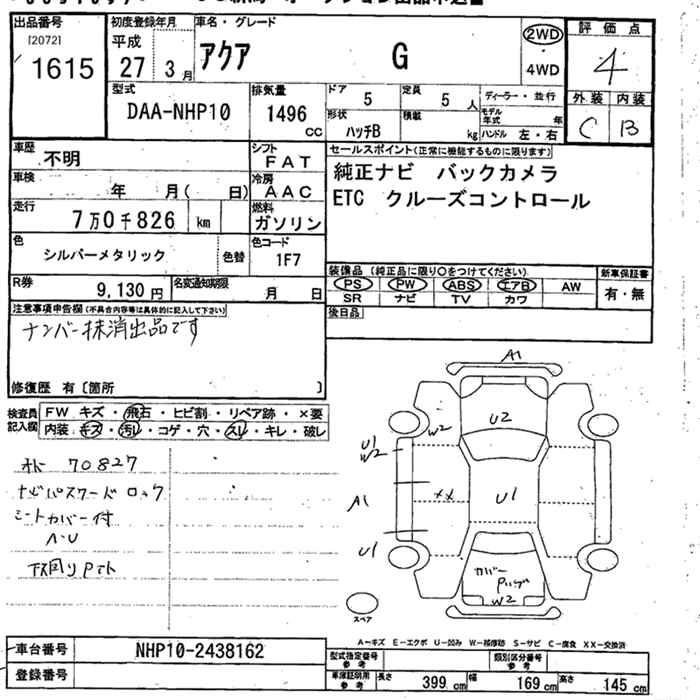 出品番号 初度登録年月 車名・グレード 2WD 評価点
[2072] 平成 アクア G 4
1615 27 3月 4WD 外装 内装
型式 排気量 ドア 5 定員 5人 ディーラー・並行 C B
DAA-NHP10 1496 cc 形状 ハッチB 積載 kg モデル年式 年
ハンドル 左・右
車歴 不明 シフト FAT セールスポイント(正常に機能するものに限ります)
車検 年 月( 日) 冷房 AAC 純正ナビ バックカメラ
走行 7万0千826 km 燃料 ガソリン ETC クルーズコントロール
色 シルバーメタリック 色替 色コード 1F7
装備品(純正品に限り○をつけてください) 新車保証書
R券 9,130円 名変通知期限 月 日 PS PW ABS エアB AW 有・無
SR ナビ TV カワ
注意事項申告欄(不具合内容等は具体的に記入して下さい) 後日品
ナンバー抹消出品です
修復歴 有〔箇所 〕
検査員記入欄 FW キズ・飛石・ヒビ割・リペア跡・×要
内装・キズ・汚レ・コゲ・穴・スレ・キレ・破レ
70827
ナビパスワードロック
シートカバー付
下回り
A1
U2
W2
U1
W2
XX
U1
A1
U1
カバー
W2
スペア
A-キズ E-エクボ U-凹み W-補修跡 S-サビ C-腐食 XX-交換済
車台番号 NHP10-2438162
型式指定番号 参考 類別区分番号 参考
登録番号
車庫証明用 参考 長さ 399 cm 幅 169 cm 高さ 145 cm